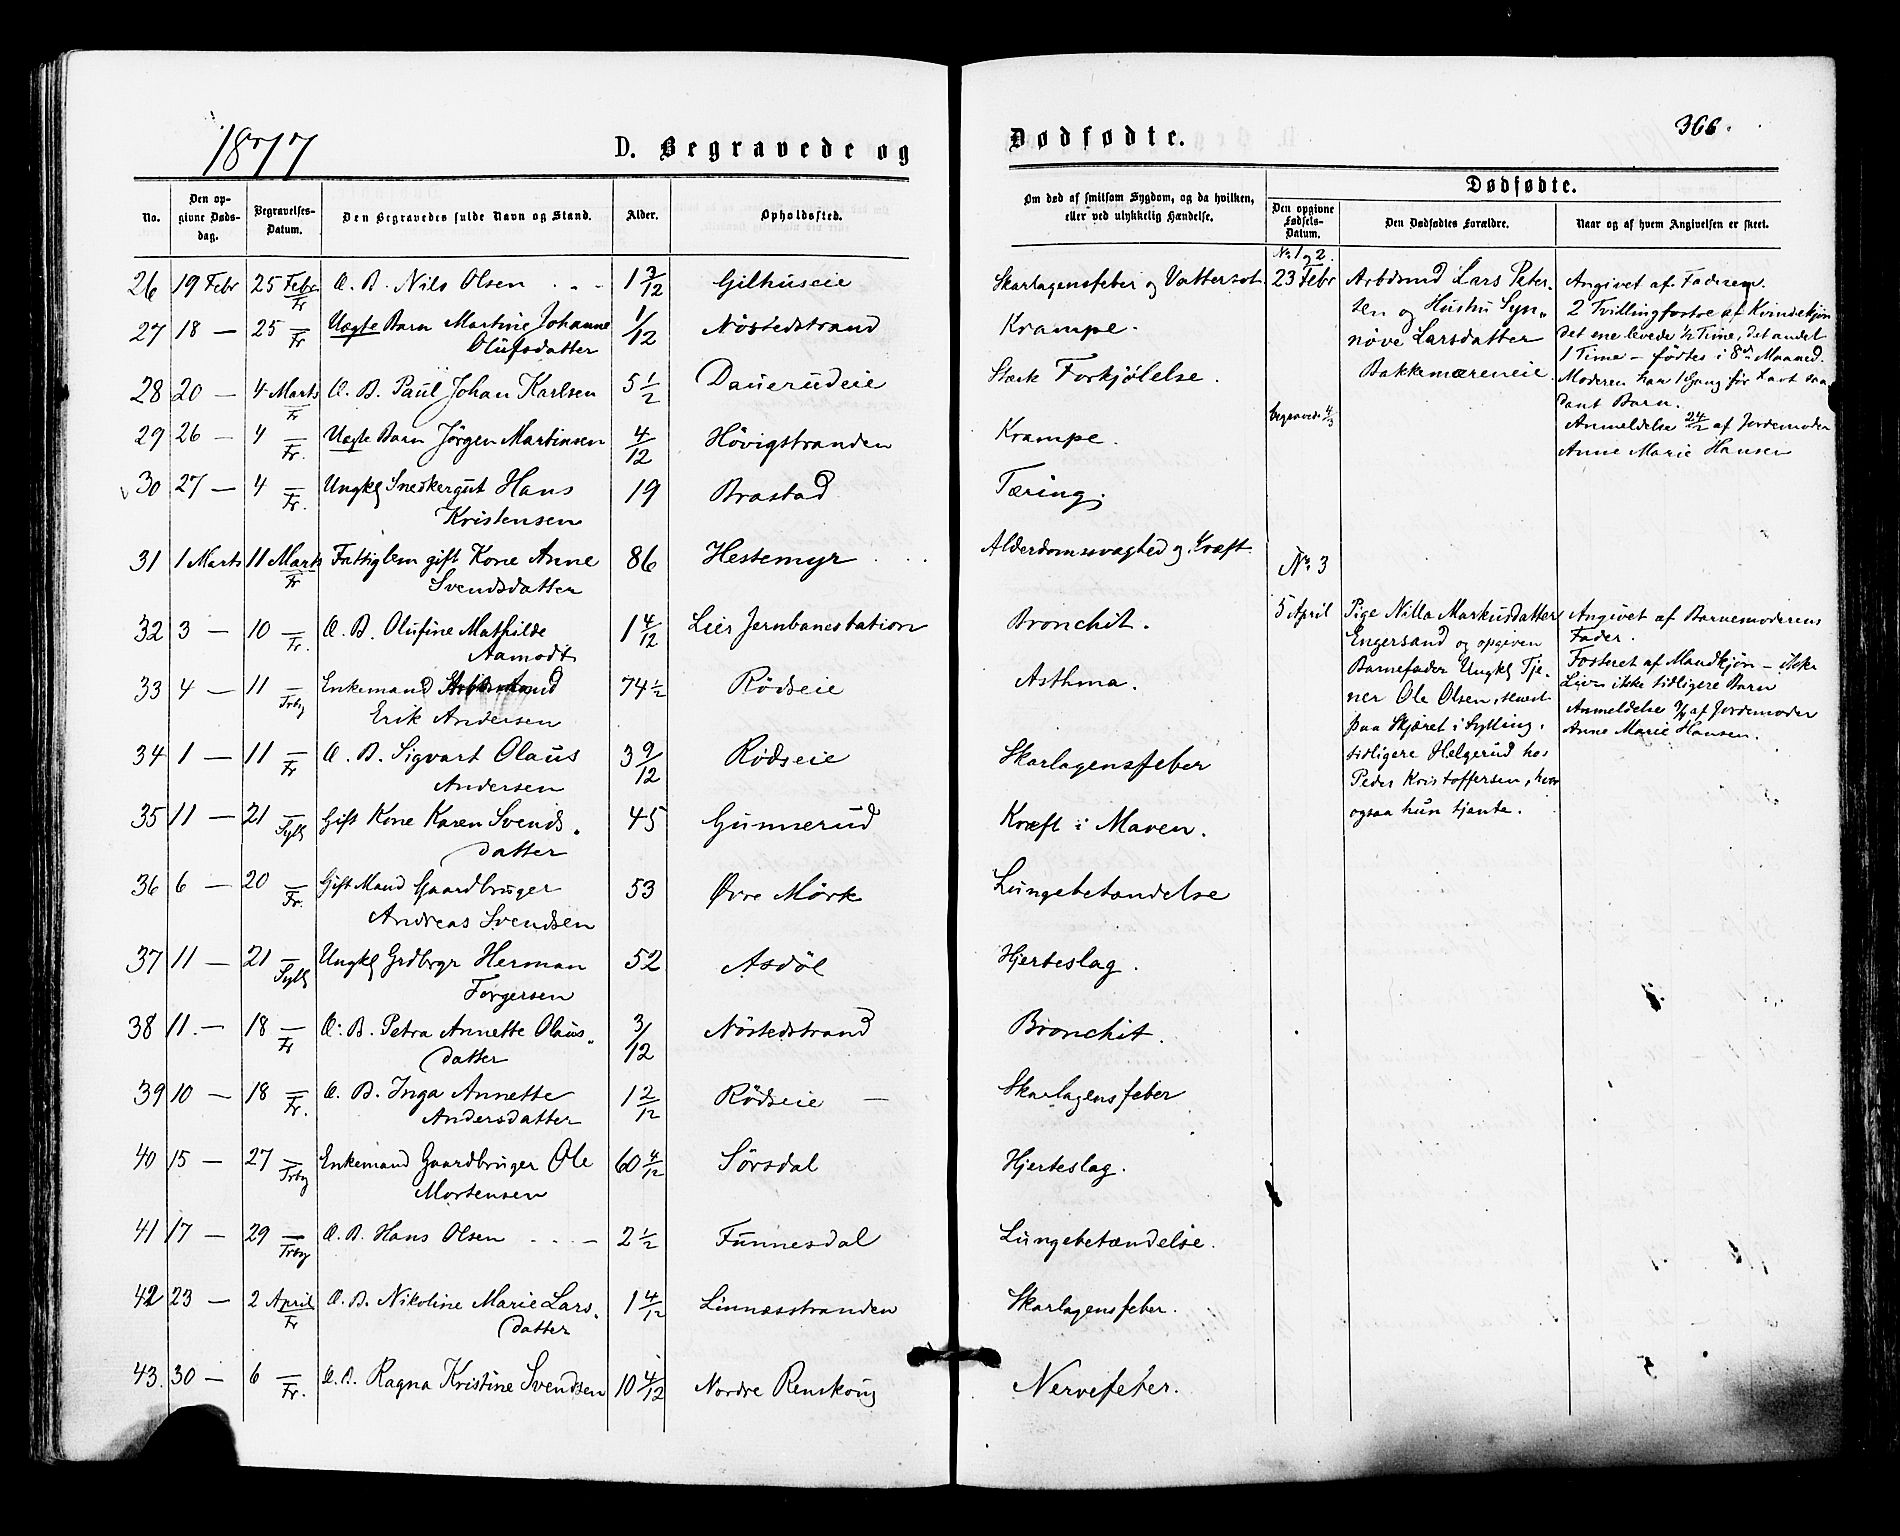 1877
D. Begravede og
No.
Den op-
givne Døds-
dag.
Begravelses-
Datum.
Den Begravedes fulde Navn og Stand.
Alder.
Opholdssted.
26 19 Febr 25 Febr Fr Æ. B. Nils Olsen 1 3/12 Gilhuseie
27 18 — 25 — Fr Uægte Barn Martine Johanne 1/12 Nöstedstrand
Olüfsdatter
28 20 — 4 Marts Fr Æ. B. Paul Johan Karlsen 5 1/2 Daueruдeie
29 26 — 4 — Fr. Uægte Barn Jörgen Martinsen 4/12 Hövigstranden
30 27 — 4 — Fr. Ungkl Snedkergut Hans 19 Brastad
Kristensen
31 1 Marts 11 Marts Fr Fattiglem gift Kone Anne 86 Hestemyr
Svendsdatter
32 3 — 10 — Fr. Æ. B. Olufine Mathilde 1 4/12 Lier Jernbanestation
Aamodt
33 4 — 11 — Frby Enkemand 74 1/2 Rödseie
Erik Andersen
34 1 — 11 — Fr Æ. B. Sigvart Olaüs 3 9/12 Rödseie
Andersen
35 11 — 21 — Sylg Gift Kone Karen Svends- 45 Günnerüd
datter
36 6 — 20 — Fr. Gift Mand Gaardbruger 53 Øvre Mörk
Andreas Svendsen
37 11 — 21 — Sylg Ungkl Grdbrgr Herman 52 Asdöl
Torgersen
38 11. — 18 — Fr Æ. B. Petra Annette Olaüs- 3/12 Nöstedstrand
datter
39 10 — 18 — Fr. Æ. B. Inga Annette 1 2/12 Rödseie —
Andersdatter
40 15 — 27 — Frby Enkemand Gaardbruger Ole 60 4/12 Sörsdal
Mortensen
41 17 — 29 — Frby Æ. B. Hans Olsen 2 1/2 Fünnesdal
42 23 — 2 April Fr Æ. B. Nikoline Marie Lars- 1 4/12 Linnæsstranden
datter
43. 30 — 6 — Fr. Æ. B. Ragna Kristine Svendsen 10 4/12 Nordre Renskoug
Dødfødte.
366.
Om død af smitsom Sygdom, og da hvilken,
eller ved ulykkelig Hændelse.
Dødfødte.
Den opgivne
Fødsels-
Datum.
Den Dødfødtes Forældre.
Naar og af hvem Angivelsen er skeet.
Skarlagensfeber og Vattersot.
Krampe.
Stærk Forkjølelse.
Krampe.
Tæring.
Alderdomssvaghed og Kræft
Bronchit.
Asthma.
Skarlagensfeber
Kræft i Maven.
Lüngebetændelse
Hjerteslag.
Bronchit.
Skarlagensfeber
Hjerteslag.
Lüngebetændelse.
Skarlagensfeber.
Nervefeber.
No. 1 og 2.
23 Febr
begravede 4/3
Arbdsmd Lars Peter-
sen og Hustru Syn-
növe Larsdatter
Bakkemæreneie.
Angivet af Faderen
2 Tvillingfostre af Kvindekjön
det ene levede 1/2 Time, det andet
1 Time — fødtes i 8de Maaned.
Moderen har 1 Gang før havt saa
dant Barn.
Anmeldelse 24/2 af Jordemoder
Anne Marie Hansen
No. 3
5 April
Pige Nilla Markusdatter
Engersand og opgiven
Barnefader Ungkl Tje-
ner Ole Olsen, senest
paa Skjæret i Sylling,
tidligere Helgerud hos
Peder Kristoffersen, hvor
ogsaa hun tjente.
Angivet af Barnemoderens
Fader.
Fosteret af Mandkjön — ikke
Liv ikke tidligere Barn
Anmeldelse af Jordemoder
Anne Marie Hansen.